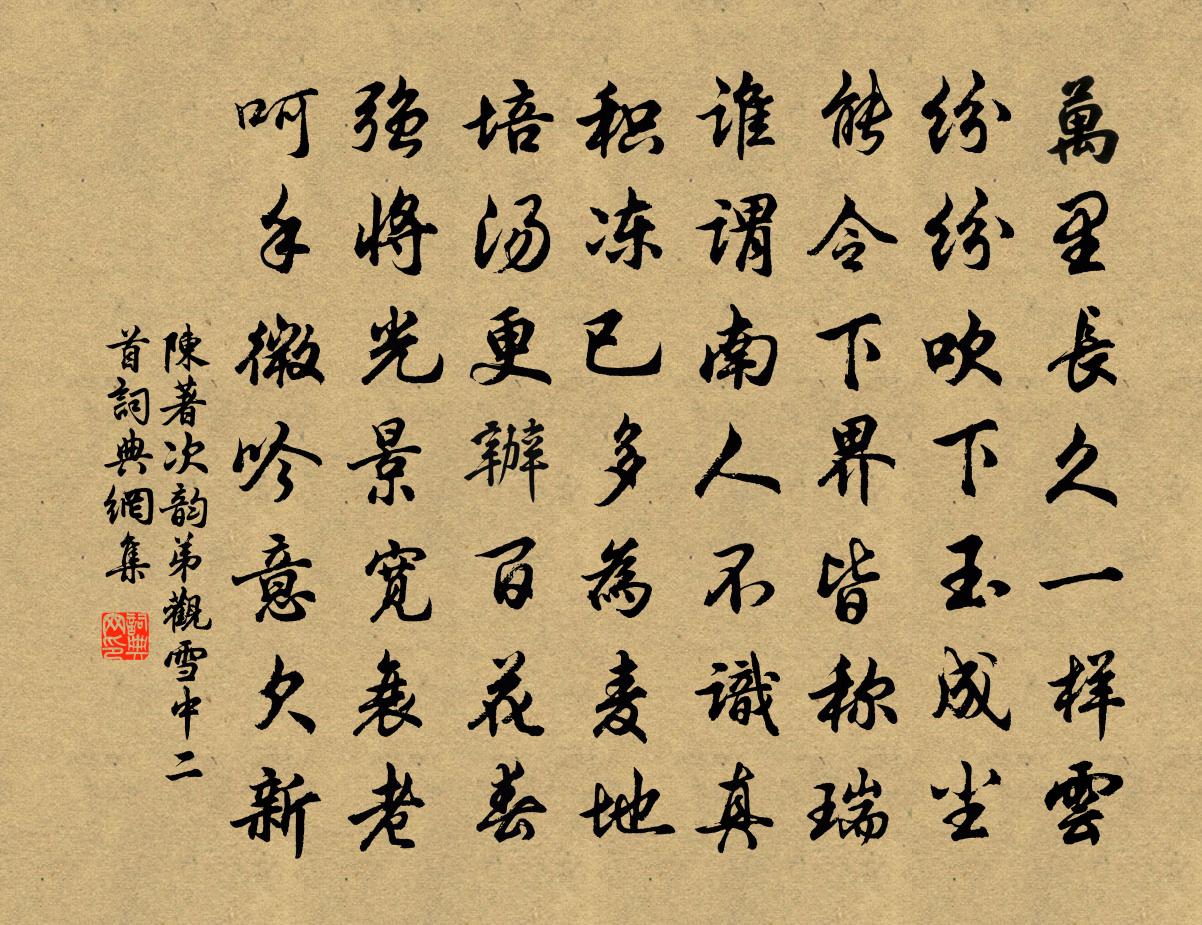 萬里長久一样雲
纷纷吹下玉成尘
能令下界皆称瑞
谁谓南人不識真
积冻已多為麦地
培汤更辦百花春
强将光景宽衰老
呵手微吟意欠新
陳著次韵弟觀雪中二
首詞典網集
詞典網印